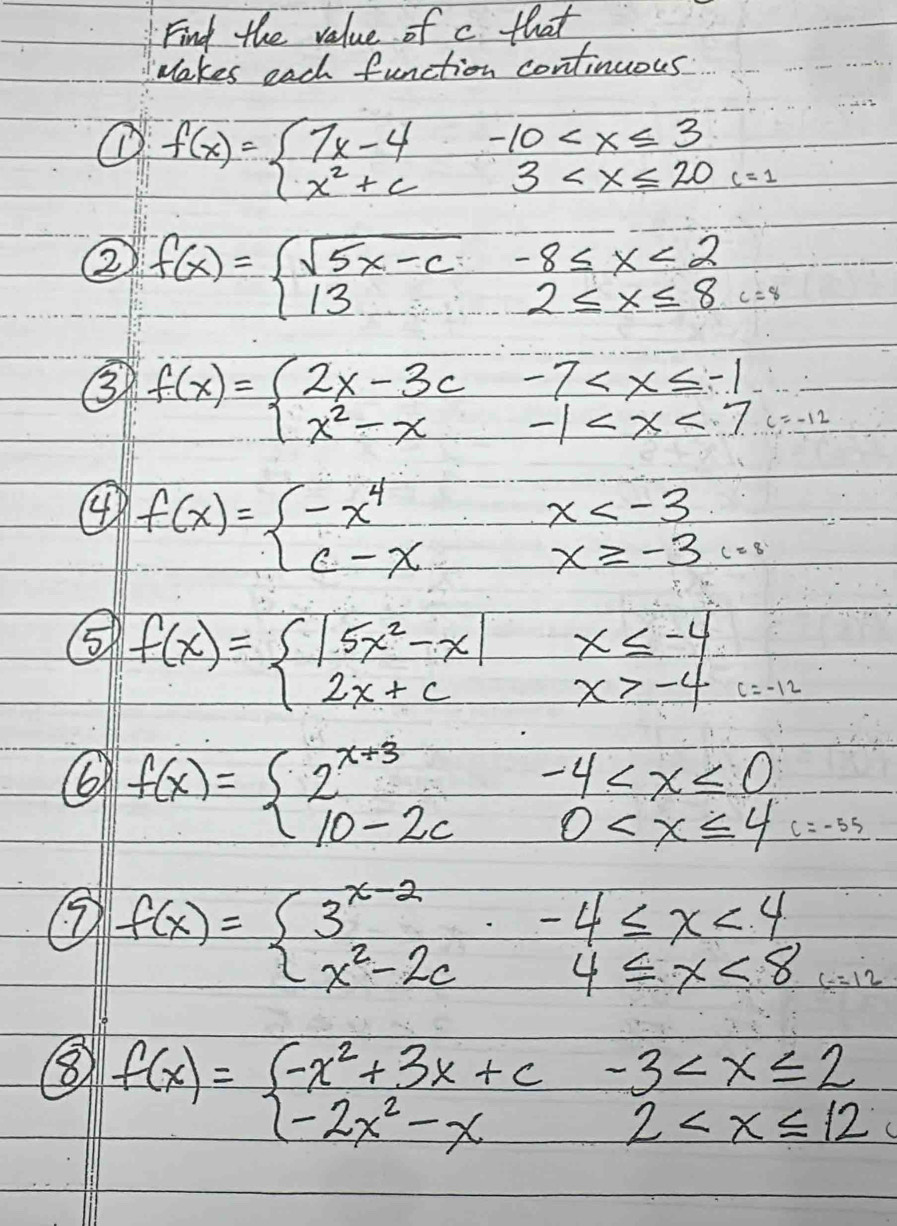 Find the value of c that
Makes each function continuous
① f(x) = { 7x - 4 -10 < x ≤ 3
x² + c 3 < x ≤ 20 c = 1
② f(x) = { √5x - c -8 ≤ x < 2
13 2 ≤ x ≤ 8 c = 8
③ f(x) = { 2x - 3c -7 < x ≤ -1
x² - x -1 < x < 7 c = -12
④ f(x) = { -x⁴ x < -3
c - x x ≥ -3 c = 8
⑤ f(x) = { |5x² - x| x ≤ -4
2x + c x > -4 c = -12
⑥ f(x) = { 2^(x+3) -4 < x ≤ 0
10 - 2c 0 < x ≤ 4 c = -55
⑦ f(x) = { 3^(x-2) -4 ≤ x < 4
x² - 2c 4 ≤ x < 8 c = 12
⑧ f(x) = { -x² + 3x + c -3 < x ≤ 2
-2x² - x 2 < x ≤ 12